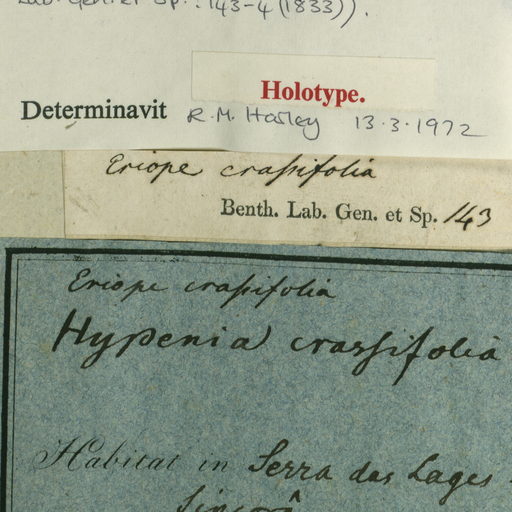 Lab. Gen. et Sp.: 143-4 (1833)).
Holotype.
Determinavit R.M. Harley 13.3.1972
Eriope crassifolia
Benth. Lab. Gen. et Sp. 143
Eriope crassifolia
Hypenia crassifolia
Habitat in Serra das Lages
Sincorâ